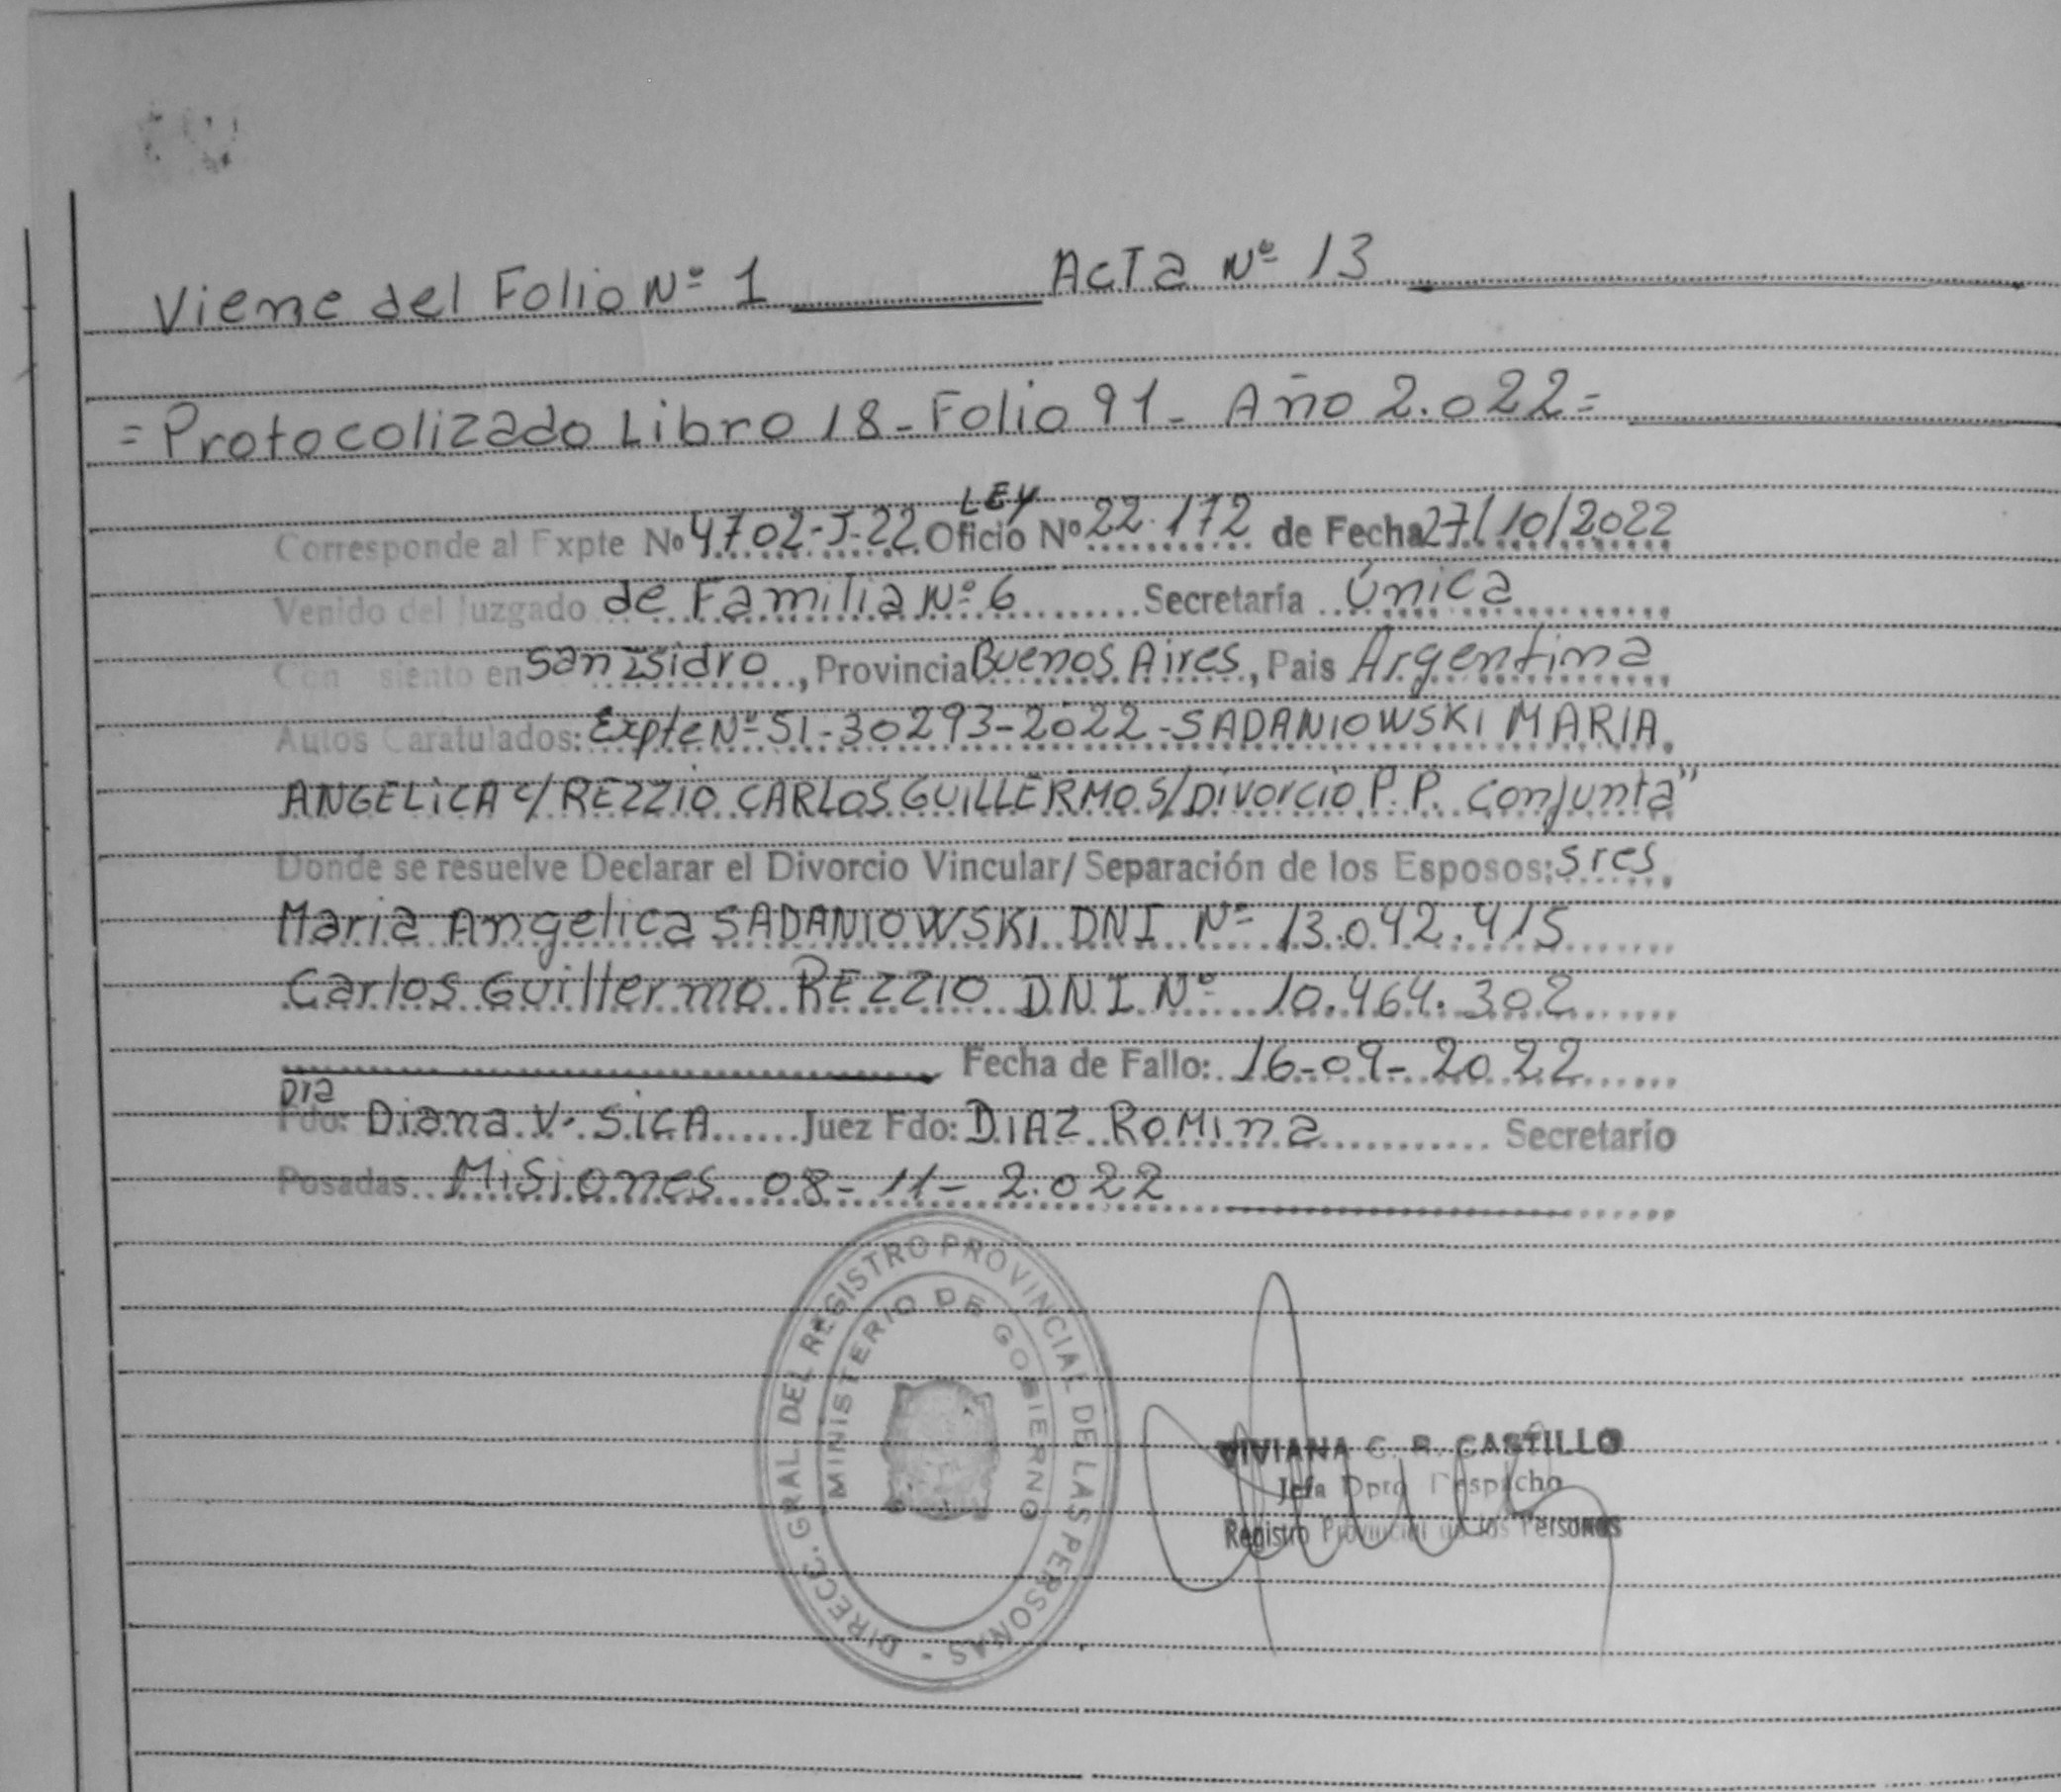 Viene del Folio Nº 1 Acta Nº 13
= Protocolizado Libro 18 - Folio 91 - Año 2.022 =
LEY
Corresponde al Expte Nº 4702-J-22 Oficio Nº 22.172 de Fecha 27/10/2022
Venido del Juzgado de Familia Nº 6 Secretaría Única
Con siento en San Isidro, Provincia Buenos Aires, Pais Argentina
Autos Caratulados: Expte Nº SI-30293-2022-SADANIOWSKI MARIA
ANGELICA c/ REZZIO CARLOS GUILLERMO S/ Divorcio P.P. Conjunta"
Donde se resuelve Declarar el Divorcio Vincular/ Separación de los Esposos: Sres
Maria Angelica SADANIOWSKI DNI Nº 13.042.415
Carlos Guillermo REZZIO DNI Nº 10.464.302
Fecha de Fallo: 16-09-2022
Dra
Fdo: Diana V. SICA Juez Fdo: DIAZ ROMINA Secretario
Posadas Misiones 08-11-2.022
DIRECC. GRAL. DEL REGISTRO PROVINCIAL DE LAS PERSONAS -
MINISTERIO DE GOBIERNO
VIVIANA C. R. CASTILLO
Jefa Dpto Despacho
Registro Provincial de las Personas